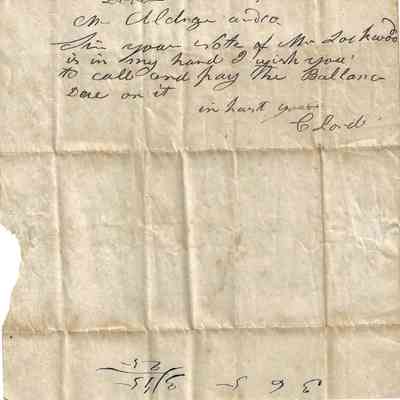 Mr Aldrige and co
Sir your Note of Mr Lockwood
is in my hand I wish you
to call and pay the Ballance
Due on it
in hast yours
C Lord